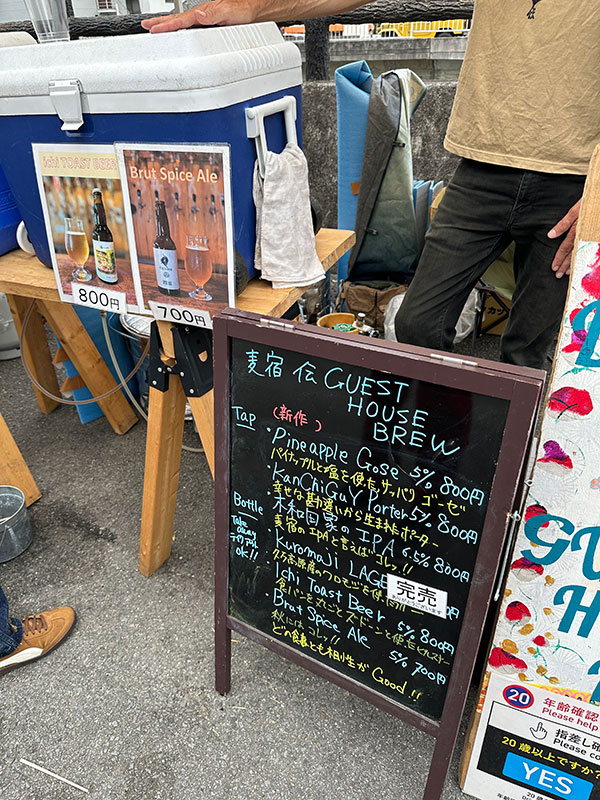 ichi TOAST BEER
800円
Brut Spice Ale
700円
麦宿 伝 GUEST
HOUSE
BREW
Tap
(新作)
・Pineapple Gose 5% 800円
パイナップルと塩を使ったサッパリ ゴーゼ
・KanChiGaY Porter 5% 800円
幸せな勘違いから生まれたポーター
国家のIPA 6.5% 800円
麦宿のIPAと言えばコレ!!
Bottle
Take away
ok!!
・Kuromoji LAGE
完売
ありがとうございます
円
・Ichi Toast Beer 5% 800円
食パンを丸ごと
・Brut Spice Ale 5% 700円
秋にはコレッ!!
どの食事とも相性が Good!!
GU
H
20
年齢確認
Please help
指差し確
Please co
20歳以上ですか
YES